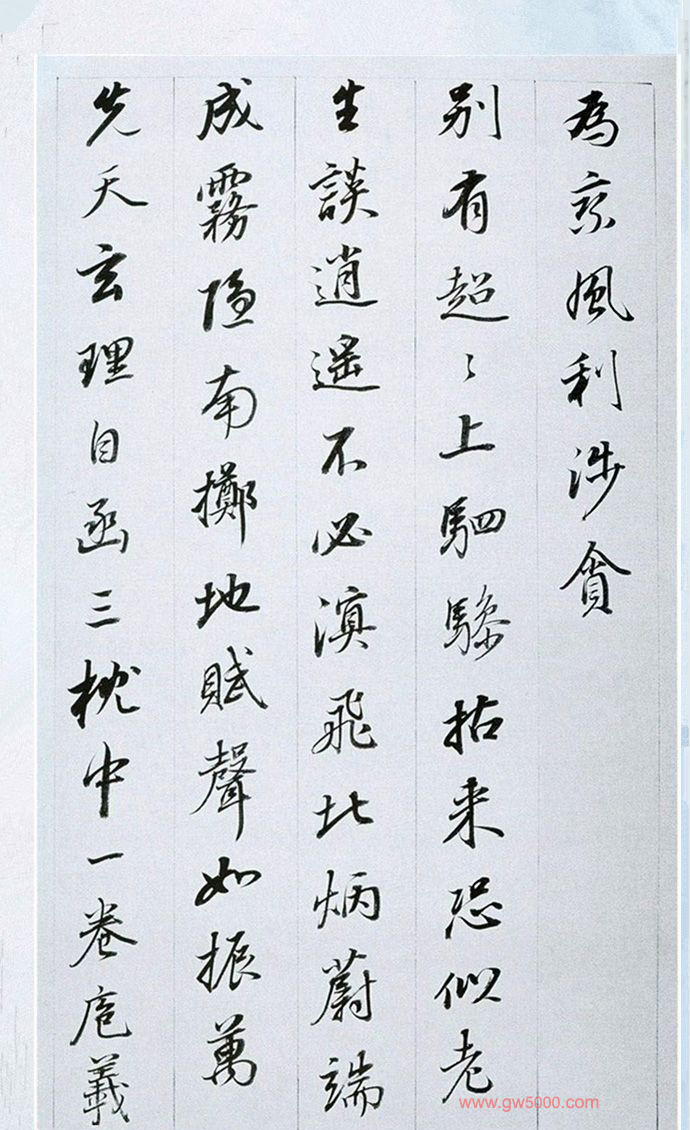 為京風利涉貪
别有超〻上駟驂拈来恐似老
生談逍遥不必溟飛北炳蔚端
成霧隐南擲地賦聲如振萬
先天玄理自函三枕中一卷庖羲
www.gw5000.com